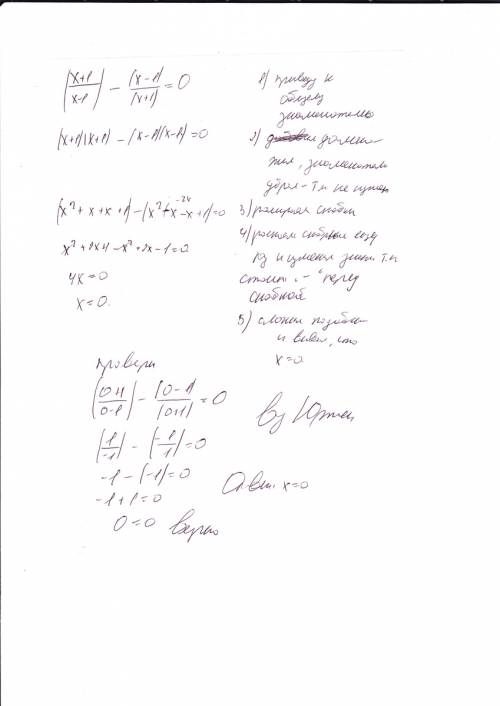 (x+1)/(x-1) - (x-1)/(x+1) = 0
(x+1)(x+1) - (x-1)(x-1) = 0
(x²+x+x+1) - (x² -x -x +1) = 0
-2x
x²+2x+1-x²+2x-1=0
4x=0
x=0.
1) приведу к
общему
знаменателю
2)
знаменатель
убрал - т.к не нужен
3) раскрываю скобки
4)
и изменил знаки т.к
стоит "-" перед
скобкой
5) сложил подобные
и вывел, что
x=0
проверка
(0+1)/(0-1) - (0-1)/(0+1) = 0
(1/-1) - (-1/1) = 0
-1-(-1)=0
-1+1=0
0=0 верно
Ответ: x=0